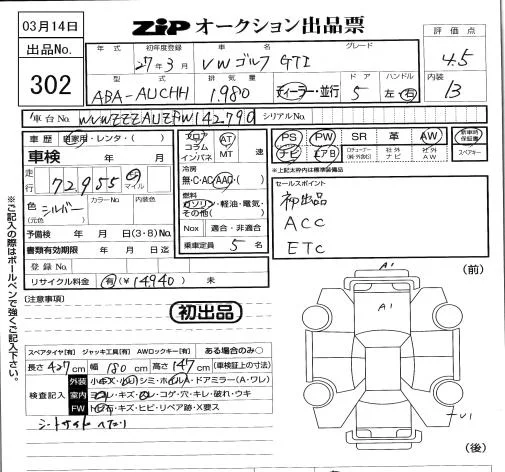 03月14日
ZIP オークション出品票
出品No.
302
評価点
4.5
内装
B
年式 初年度登録 車名 グレード
27年3月 VWゴルフ GTI
型式 排気量 ドア ハンドル
ABA-AUCHH 1,980 ディーラー・並行 5 左・右
車台No. WVWZZZAUZFW142790 シリアルNo.
車歴 自家用・レンタ・( )
車検 年 月
走行 72,955 km マイル
色(元色) シルバー カラーNo. 内装色
予備検 年 月 日(3・8)No.
書類有効期限 年 月 日迄
登録No.
リサイクル料金 有(¥14,940) 未
フロア コラム インパネ AT MT 速
冷房
無・C・AC・AAC・( )
燃料
ガソリン・軽油・電気・その他( )
Nox 適合・非適合
乗車定員 5 名
PS PW SR 革 AW 新車時保証書
ナビ エアB 社外ナビ 社外AW スペアキー
※上記太枠内は標準装備品
セールスポイント
初出品
ACC
ETC
※ご記入の際はボールペンで強くご記入下さい。
(注意事項)
初出品
スペアタイヤ[有] ジャッキ工具[有] AWロックキー[有] ある場合のみ○
長さ 427cm 幅 180cm 高さ 147cm (車検証上の寸法)
検査記入
外装 小キズ・小凹・シミ・ホイルA・ドアミラー(A・ワレ)
室内 ヨゴレ・キズ・スレ・コゲ・穴・キレ・破れ・ウキ
FW トビ石・キズ・ヒビ・リペア跡・X要ス
シートサイドヘタリ
(前)
A1
A1
(後)